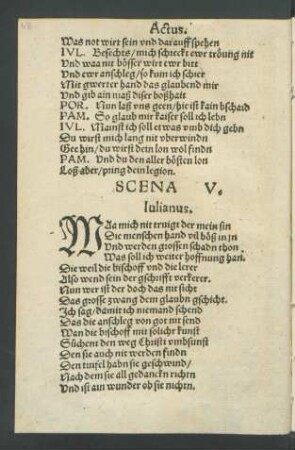 Actus.
Was not wirt sein vnd darauff spehen
IVL. Besechts / mich schreckt ewr tröung nit
Vnd waa nit bösser wirt ewr bitt
Vnd ewr anschleg / so kum ich schier
Mit gwerter hand das glaubend mir
Vnd gib ain maß diser boßhait
POR. Nun laß vns geen / hie ist kain bschaid
PAM. So glaub mir kaiser soll ich lebn
IVL. Mainst ich soll et was vmb dich gebn
Du wirst mich lang nit vberwindn
Gee hin / du wirst dein lon wol findn
PAM. Vnd du den aller bösten lon
Loß aber / pring dein legion.
SCENA V.
Iulianus.
WAa mich nit truigt der mein sin
Die menschen hand vil böß in jn
Vnd werden grossen schadn thon
Was soll ich weiter hoffnung han.
Die weil die bischoff vnd die lerer
Also wend sein der gschrifft verkerer.
Nun wer ist der doch das nit sicht
Das grosse zwang dem glaubn gschicht.
Ich sag / damit ich niemand schend
Das die anschleg von got nit send
Wan die bischoff mit solicher kunst
Süchent den weg Christi vmbsunst
Den sie auch nit werden findn
Den tuifel habn sie geschwind /
Nach dem sie all gedanckn richtn
Vnd ist ain wunder ob sie nichtn.